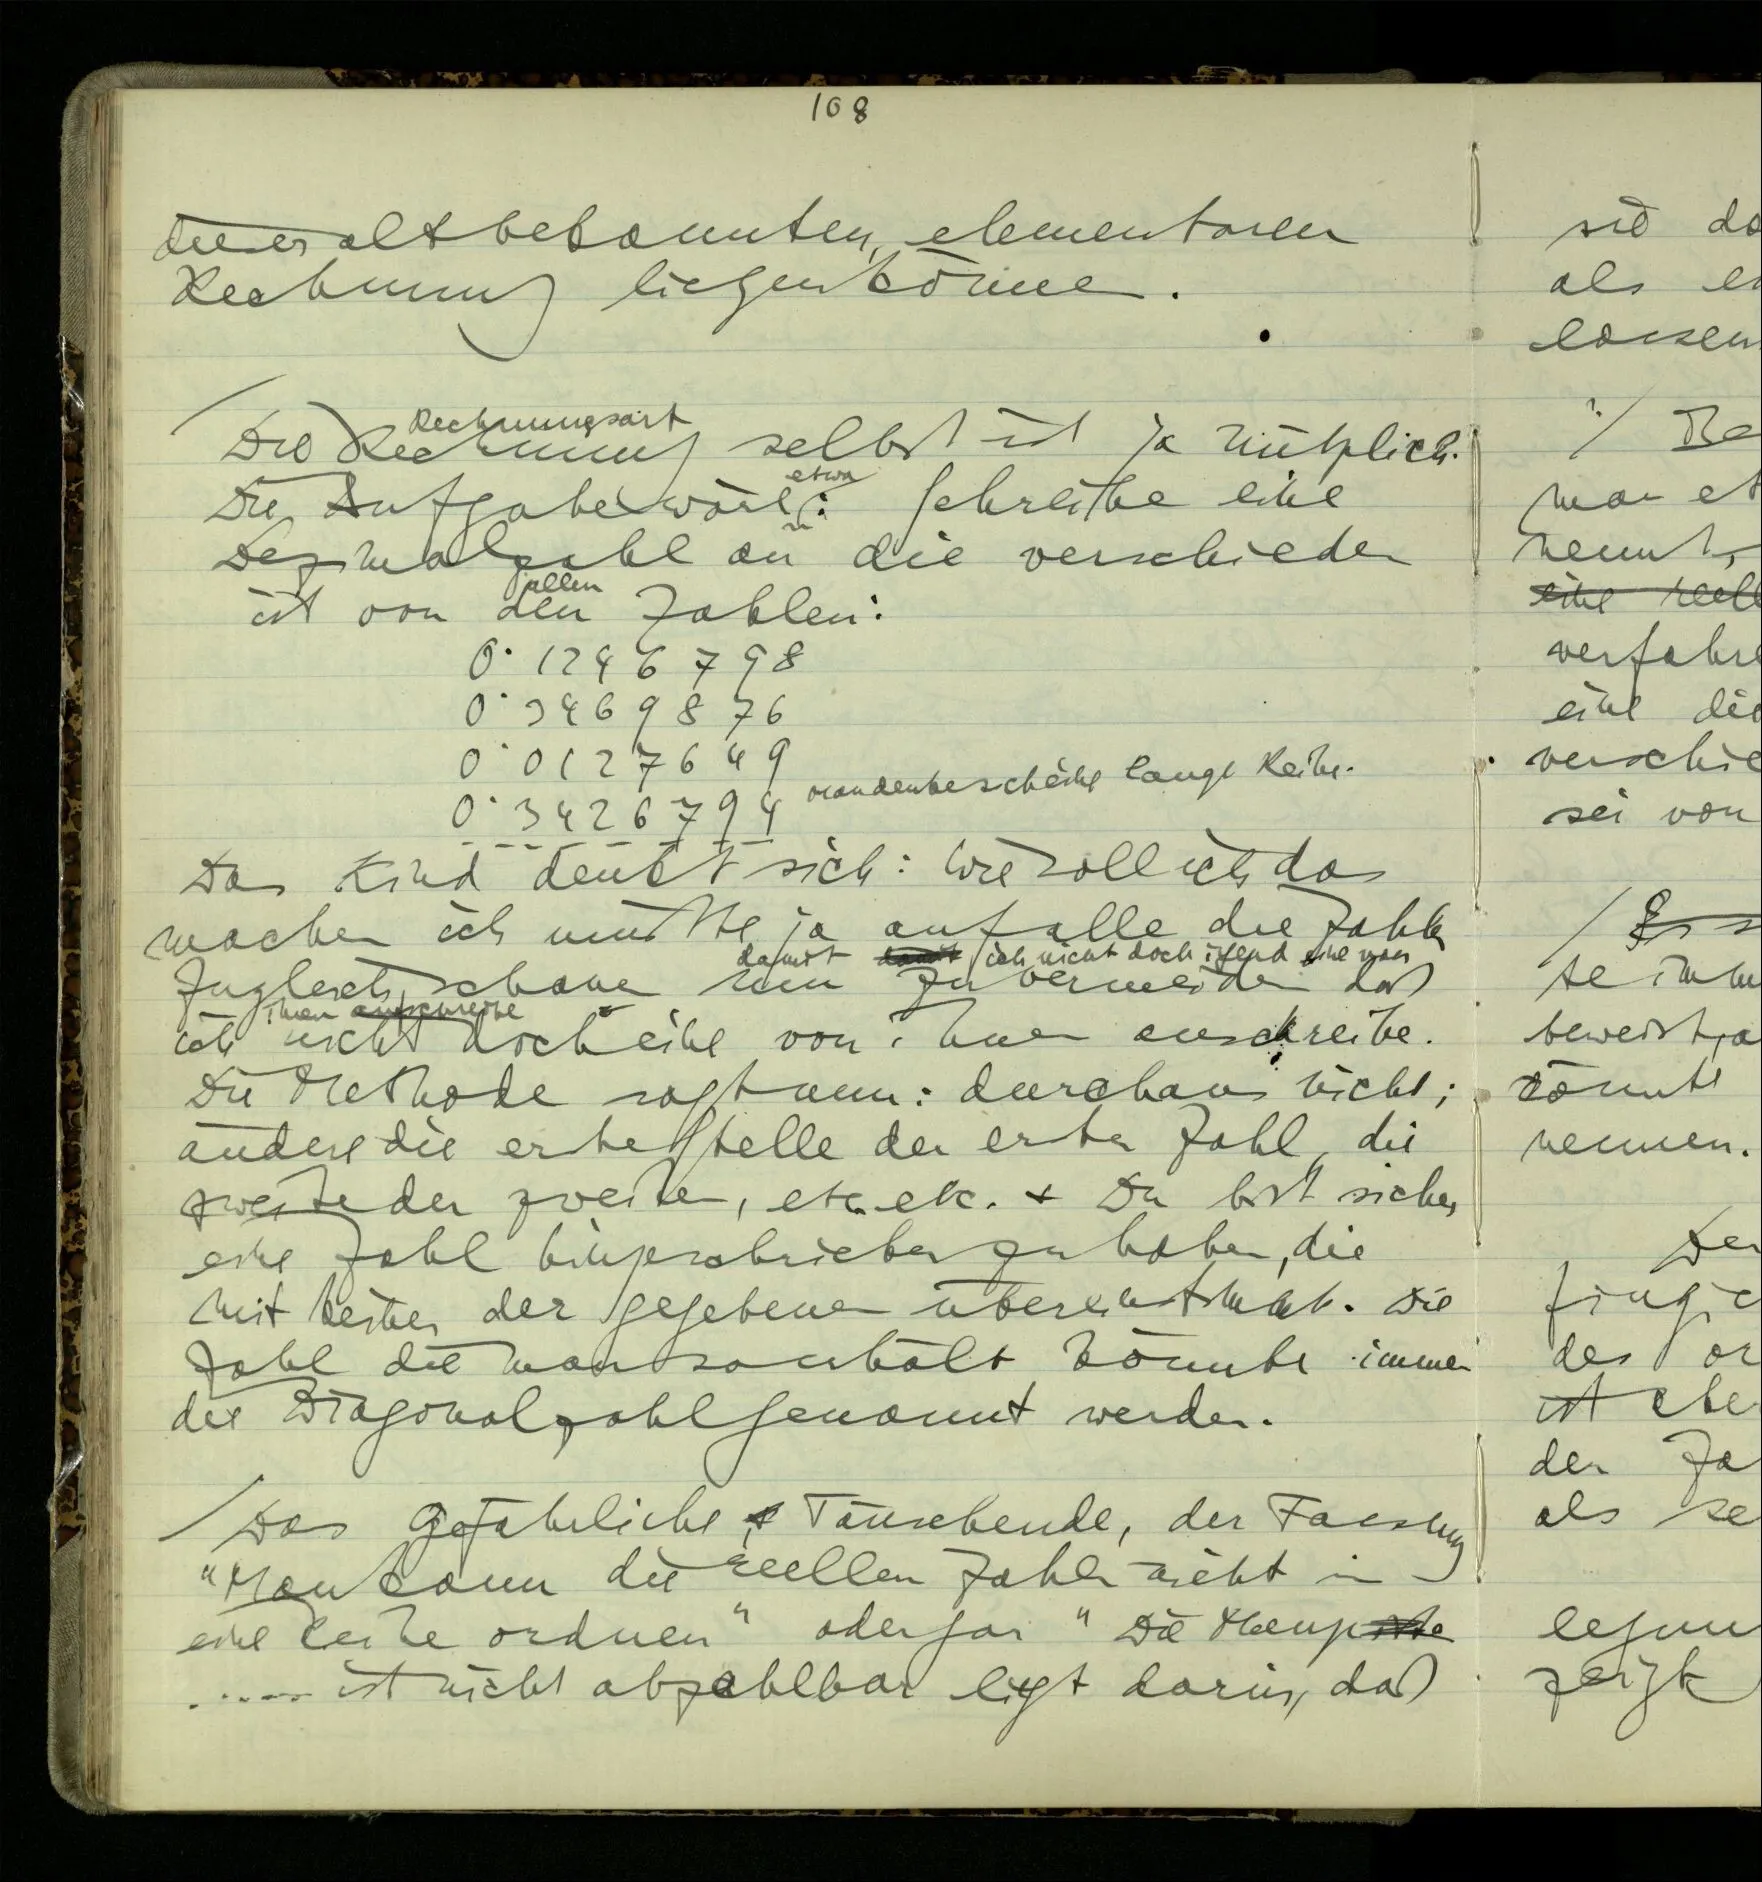 108
dieser altbekannten, elementaren
Rechnung liegen könne.
/ Die Rechnung Rechnungsart selbst ist ja nützlich.
Die Aufgabe wäre etwa: Schreibe eine
Dezimalzahl an die verschieden
ist von den allen Zahlen:
0˙1246798
0˙3469876
0˙0127649
0˙3426794 lange Reihe.
Das Kind denkt sich: wie soll ich das
machen ich müßte ja auf alle die Zahlen
zugleich schauen um zu vermeiden daß
damit damit ich nicht doch irgend eine von
ich nicht doch eine von ihnen anschreibe.
ihnen anschreibe
Die Methode sagt nun: durchaus nicht;
ändere die erste Stelle der ersten Zahl, die
zweite der zweiten, etc. etc. & Du bist sicher
eine Zahl hingeschrieben zu haben, die
mit keiner der gegebenen übereinstimmt. Die
Zahl die man so erhält könnte immer
die Diagonalzahl genannt werden.
/ Das Gefährliche, & Täuschende, der Fassung
"Man kann die reellen Zahlen nicht in
eine Reihe ordnen" oder gar "Die Menge
..... ist nicht abzählbar liegt darin, daß
sie
als
lassen
?/
nennt,
eine reell
eine die
sei von
/
könnte
nennen.
Der
der
als
zeigt